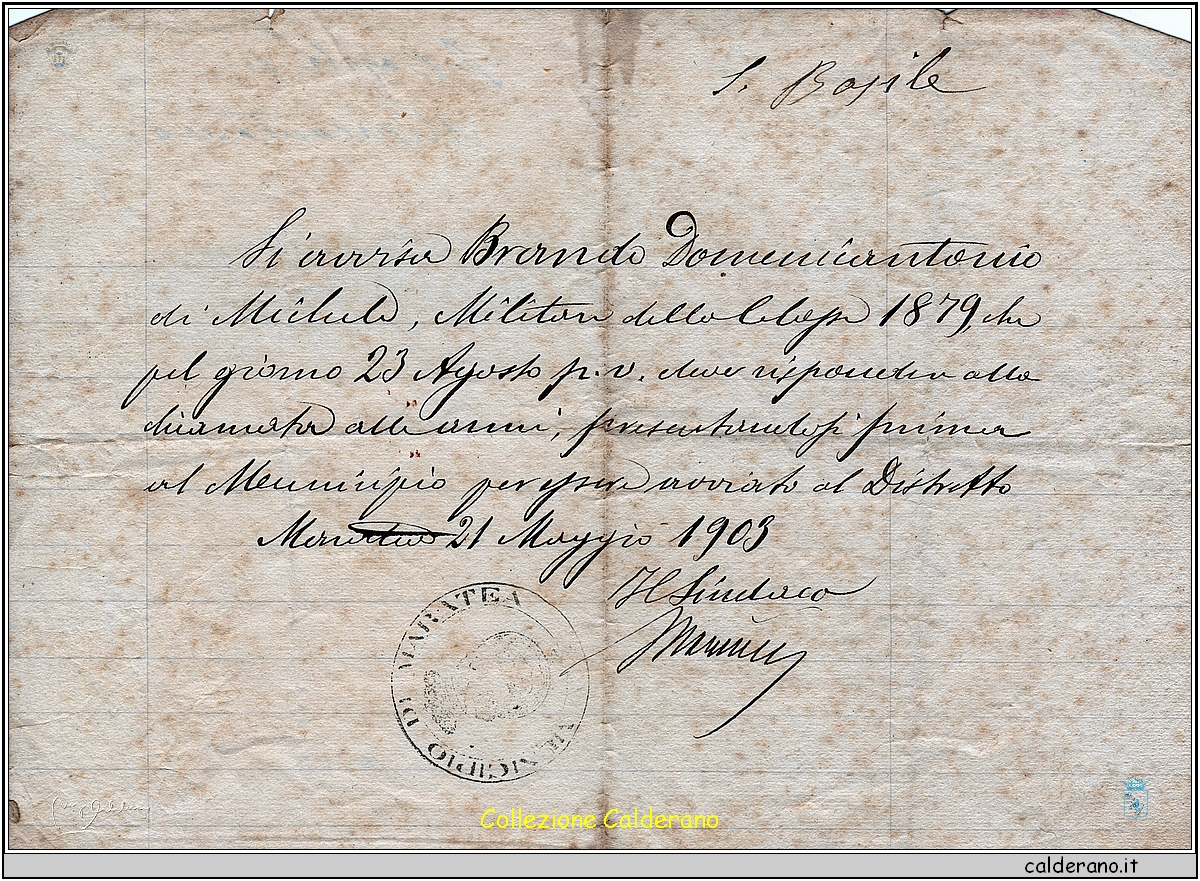 S. Basile
Si avvisa Brando Domenicantonio
di Michele, Militare della Classe 1879, che
pel giorno 23 Agosto p.v. deve rispondere alla
chiamata alle armi, presentandosi prima
al Municipio per essere avviato al Distretto
Maratea 21 Maggio 1903
Il Sindaco
MUNICIPIO DI MARATEA
Collezione Calderano
calderano.it